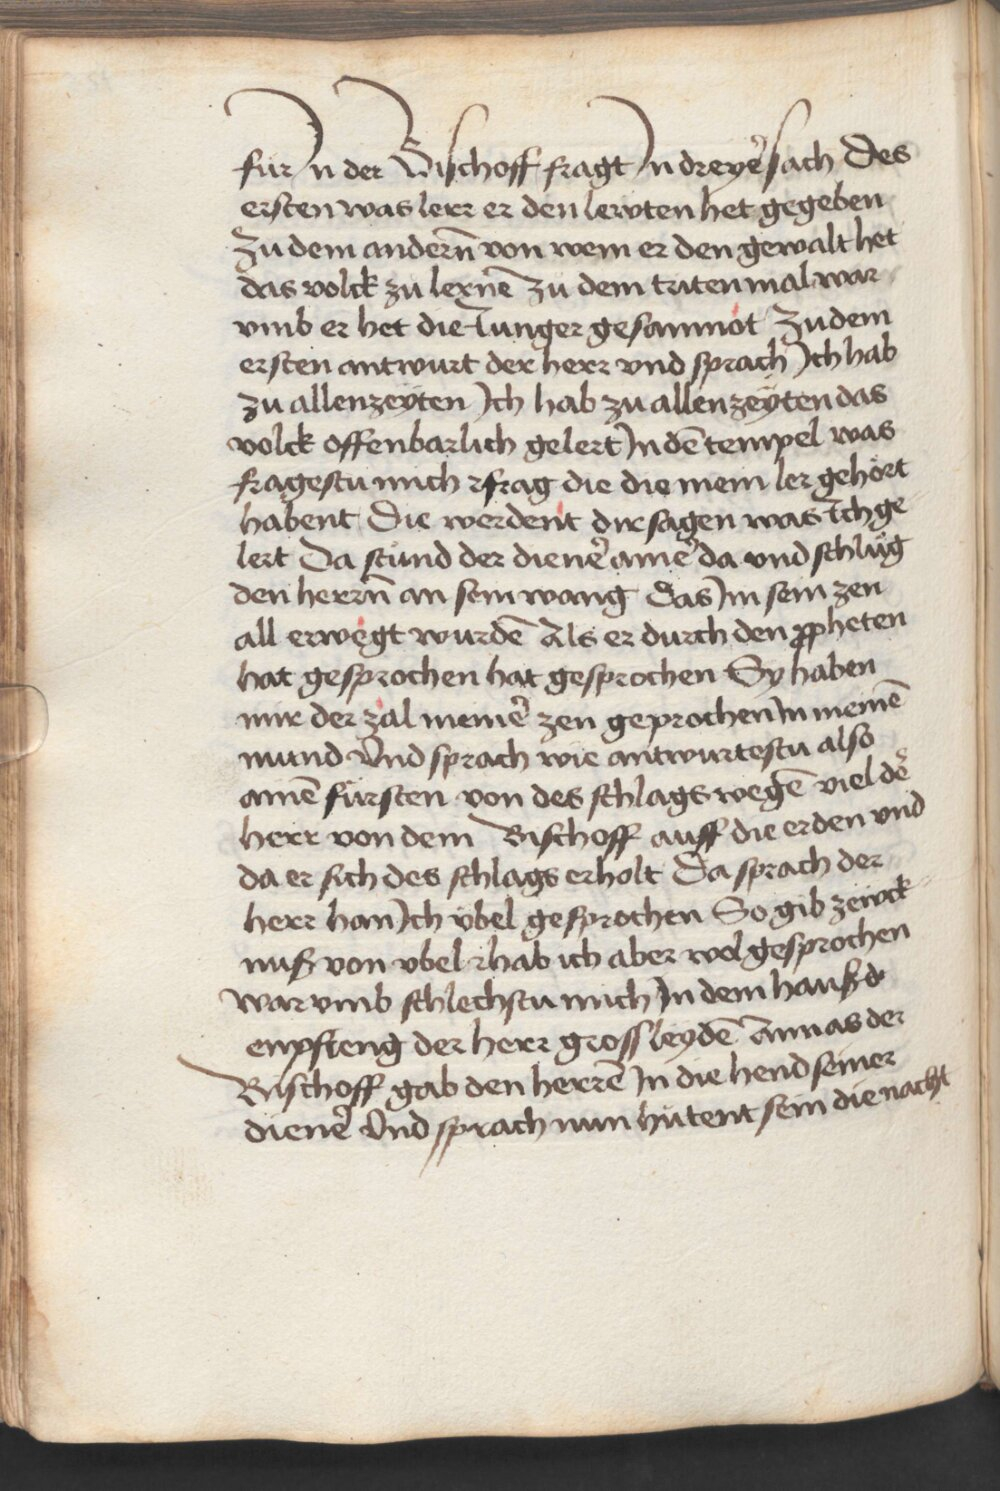 für In der Bischoff fragt In dreyer̉ sach Des
ersten was lerr er den lewten het gegeben
Zu dem andern̄ von wem er den gewalt het
das volck zu lernē zu dem triten mal war
vmb er het die Iunger gesammot Zu dem
ersten antwurt der herr vnd sprach Ich hab
zu allenzeÿten Ich hab zu allenzeÿten das
volck offenbarlich gelert In dē tempel was
fragestu mich frag die die mein ler gehört
habent Die werdent dir sagen was Ich ge
lert Da stŭnd der diener̉ ainer̉ da vnd schlŭg
den herrn̄ an sein wang das Im sein zen
all erwegt wurdē Als er durch den ꝓpheten
hat gesprochen hat gesprochen Sy haben
mir der zal meiner̉ zen geprochen In meinē
mund Vnd sprach wie antwurtestu also
ainē fürsten von des schlags wegē viel der̉
herr von dem Bischoff auff die erden vnd
da er sich des schlags erholt Da sprach der
herr han Ich übel gesprochen So gib zewck
nuß von vbel hab ich aber wol gesprochen
War vmb schlechstu mich In dem hauß do
enpfieng der herr gross leydē Annas der
Bischoff gab den herrē In die hend seiner
diener̉ Vnd sprach nun hütent sein die nacht